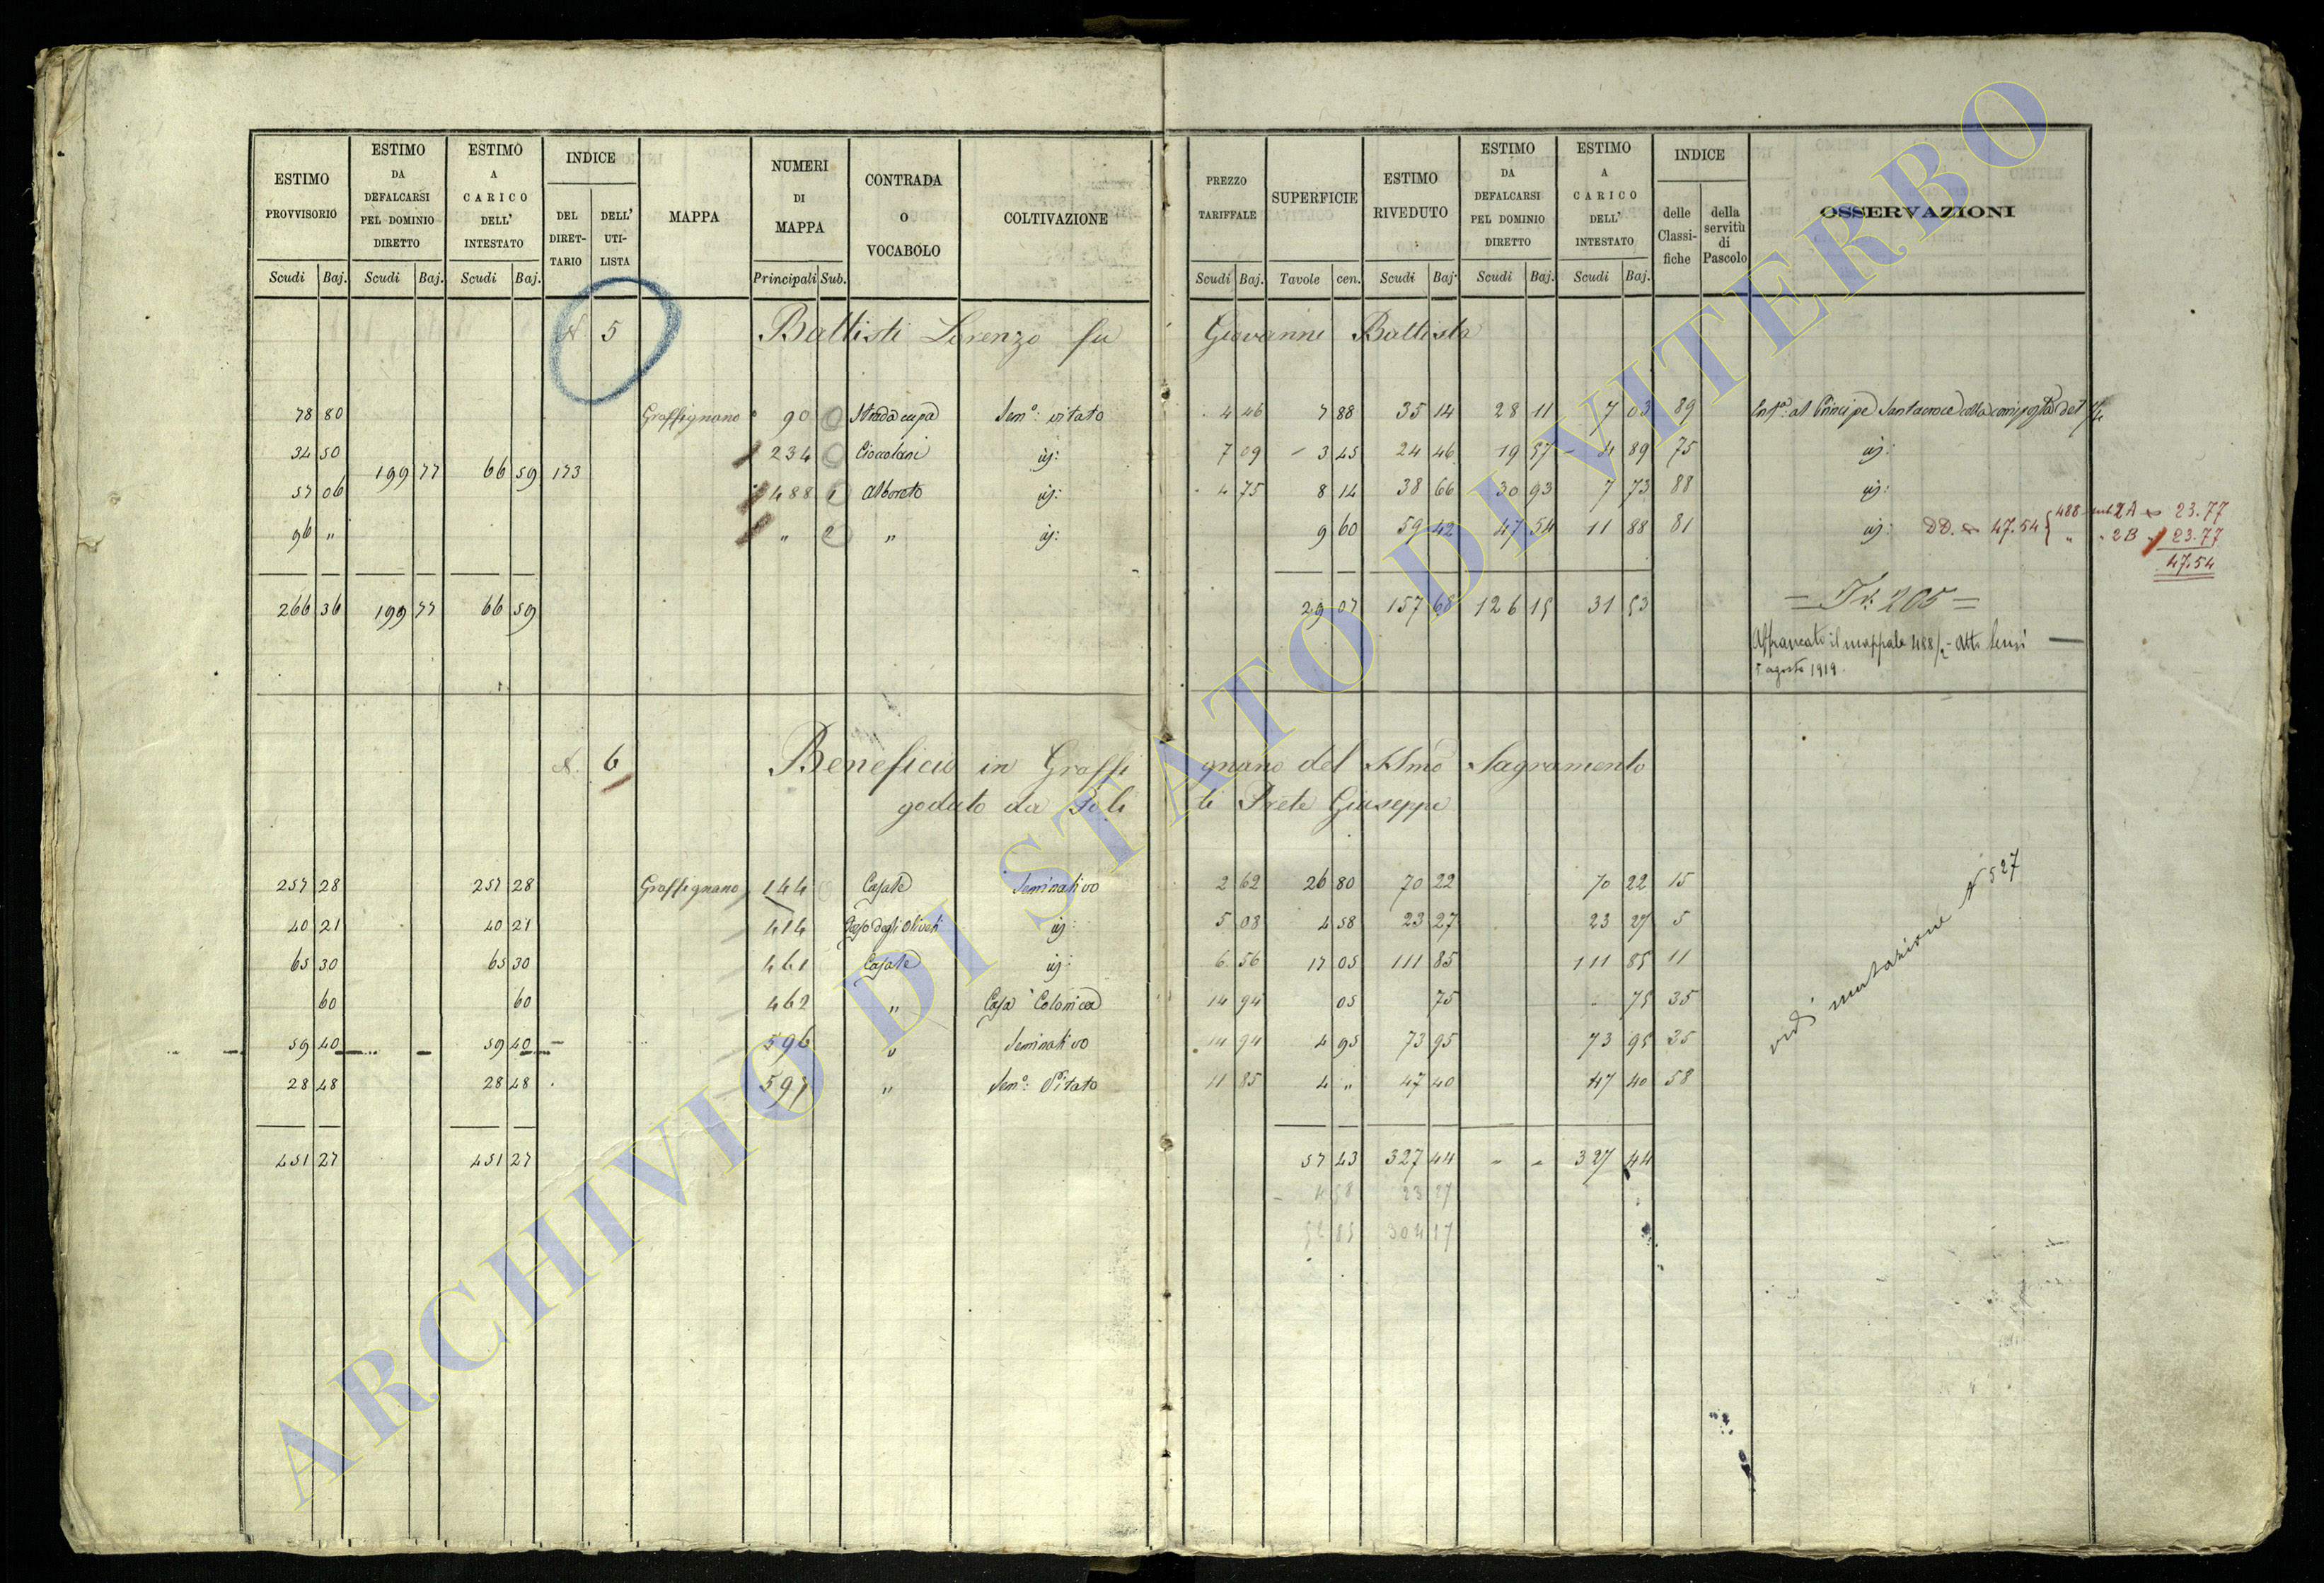 ESTIMO PROVVISORIO | ESTIMO DA DEFALCARSI PEL DOMINIO DIRETTO | ESTIMO A CARICO DELL' INTESTATO | INDICE | MAPPA | NUMERI DI MAPPA | CONTRADA O VOCABOLO | COLTIVAZIONE | PREZZO TARIFFALE | SUPERFICIE | ESTIMO RIVEDUTO | ESTIMO DA DEFALCARSI PEL DOMINIO DIRETTO | ESTIMO A CARICO DELL' INTESTATO | INDICE | OSSERVAZIONI
DEL DIRETTARIO | DELL' UTILISTA | delle Classifiche | della servitù di Pascolo
Scudi Baj. | Scudi Baj. | Scudi Baj. | Principali Sub. | Scudi Baj. | Tavole cen. | Scudi Baj. | Scudi Baj. | Scudi Baj.
N. 5 Battisti Lorenzo fu Giovanni Battista
78 80 Graffignano 90 Strada cupa Sem.º: vitato 4 46 7 88 35 14 28 11 7 03 89 Enf.ª: al Principe Santacroce colla corrisposta del
34 50 234 Cioccolani id: 7 09 3 45 24 46 19 57 4 89 75 id:
199 77 66 59 173
57 06 488 1 Alboreto id: 4 75 8 14 38 66 30 93 7 73 88 id:
96 " " 2 " id: 9 60 59 42 47 54 11 88 81 id: DD. 47.54 { 488 sub 2A 23.77
" " 2B 23.77
47.54
266 36 199 77 66 59 29 07 157 68 126 15 31 53 = Tr. 205 =
Affrancato il mappale 488/2 - Atto Sensi
5 agosto 1919.
N. 6 Beneficio in Graffignano del SSmo Sagramento
godato da Politi Prete Giuseppe
257 28 257 28 Graffignano 144 Casale Seminativo 2 62 26 80 70 22 70 22 15
40 21 40 21 414 degli Oliveti id: 5 08 4 58 23 27 23 27 5
65 30 65 30 461 Casale id: 6 56 17 05 111 85 111 85 11
60 60 462 " Casa Colonica 14 94 05 75 75 35
59 40 59 40 596 " Seminativo 14 94 4 95 73 95 73 95 35
28 48 28 48 597 " Sem.º: Vitato 11 85 4 " 47 40 47 40 58
vedi mutazione N 527
451 27 451 27 57 43 327 44 " " 327 44
4 58 23 27
52 85 304 17
ARCHIVIO DI STATO DI VITERBO